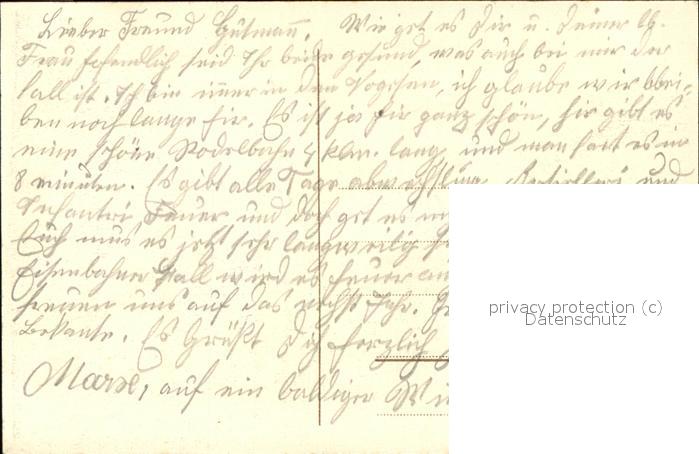 Lieber Freund Gutmann. Wie get es Dir u. deiner lb.
Frau hofendlich seid Ihr beide gesund, was auch bei mir der
fall ist. Ich bin imer in den Vogesen, ich glaube wir blei-
ben noch lange hir. Es ist ja hir ganz schön, hir gibt es
eine schöne Rodelbahn 4 klm. lang, und man fart es in
8 minuten. Es gibt alle Tage abwechslung, Artillerie und
Infantri Feuer und doch get es
Euch mus es jetzt sehr langweilig
Eisenbahner Ball wird es heuer
freuen uns auf das nächst Jahr.
Bekante. Es Grüßt Dich herzlich
Marx, auf ein baldiges
privacy protection (c)
Datenschutz